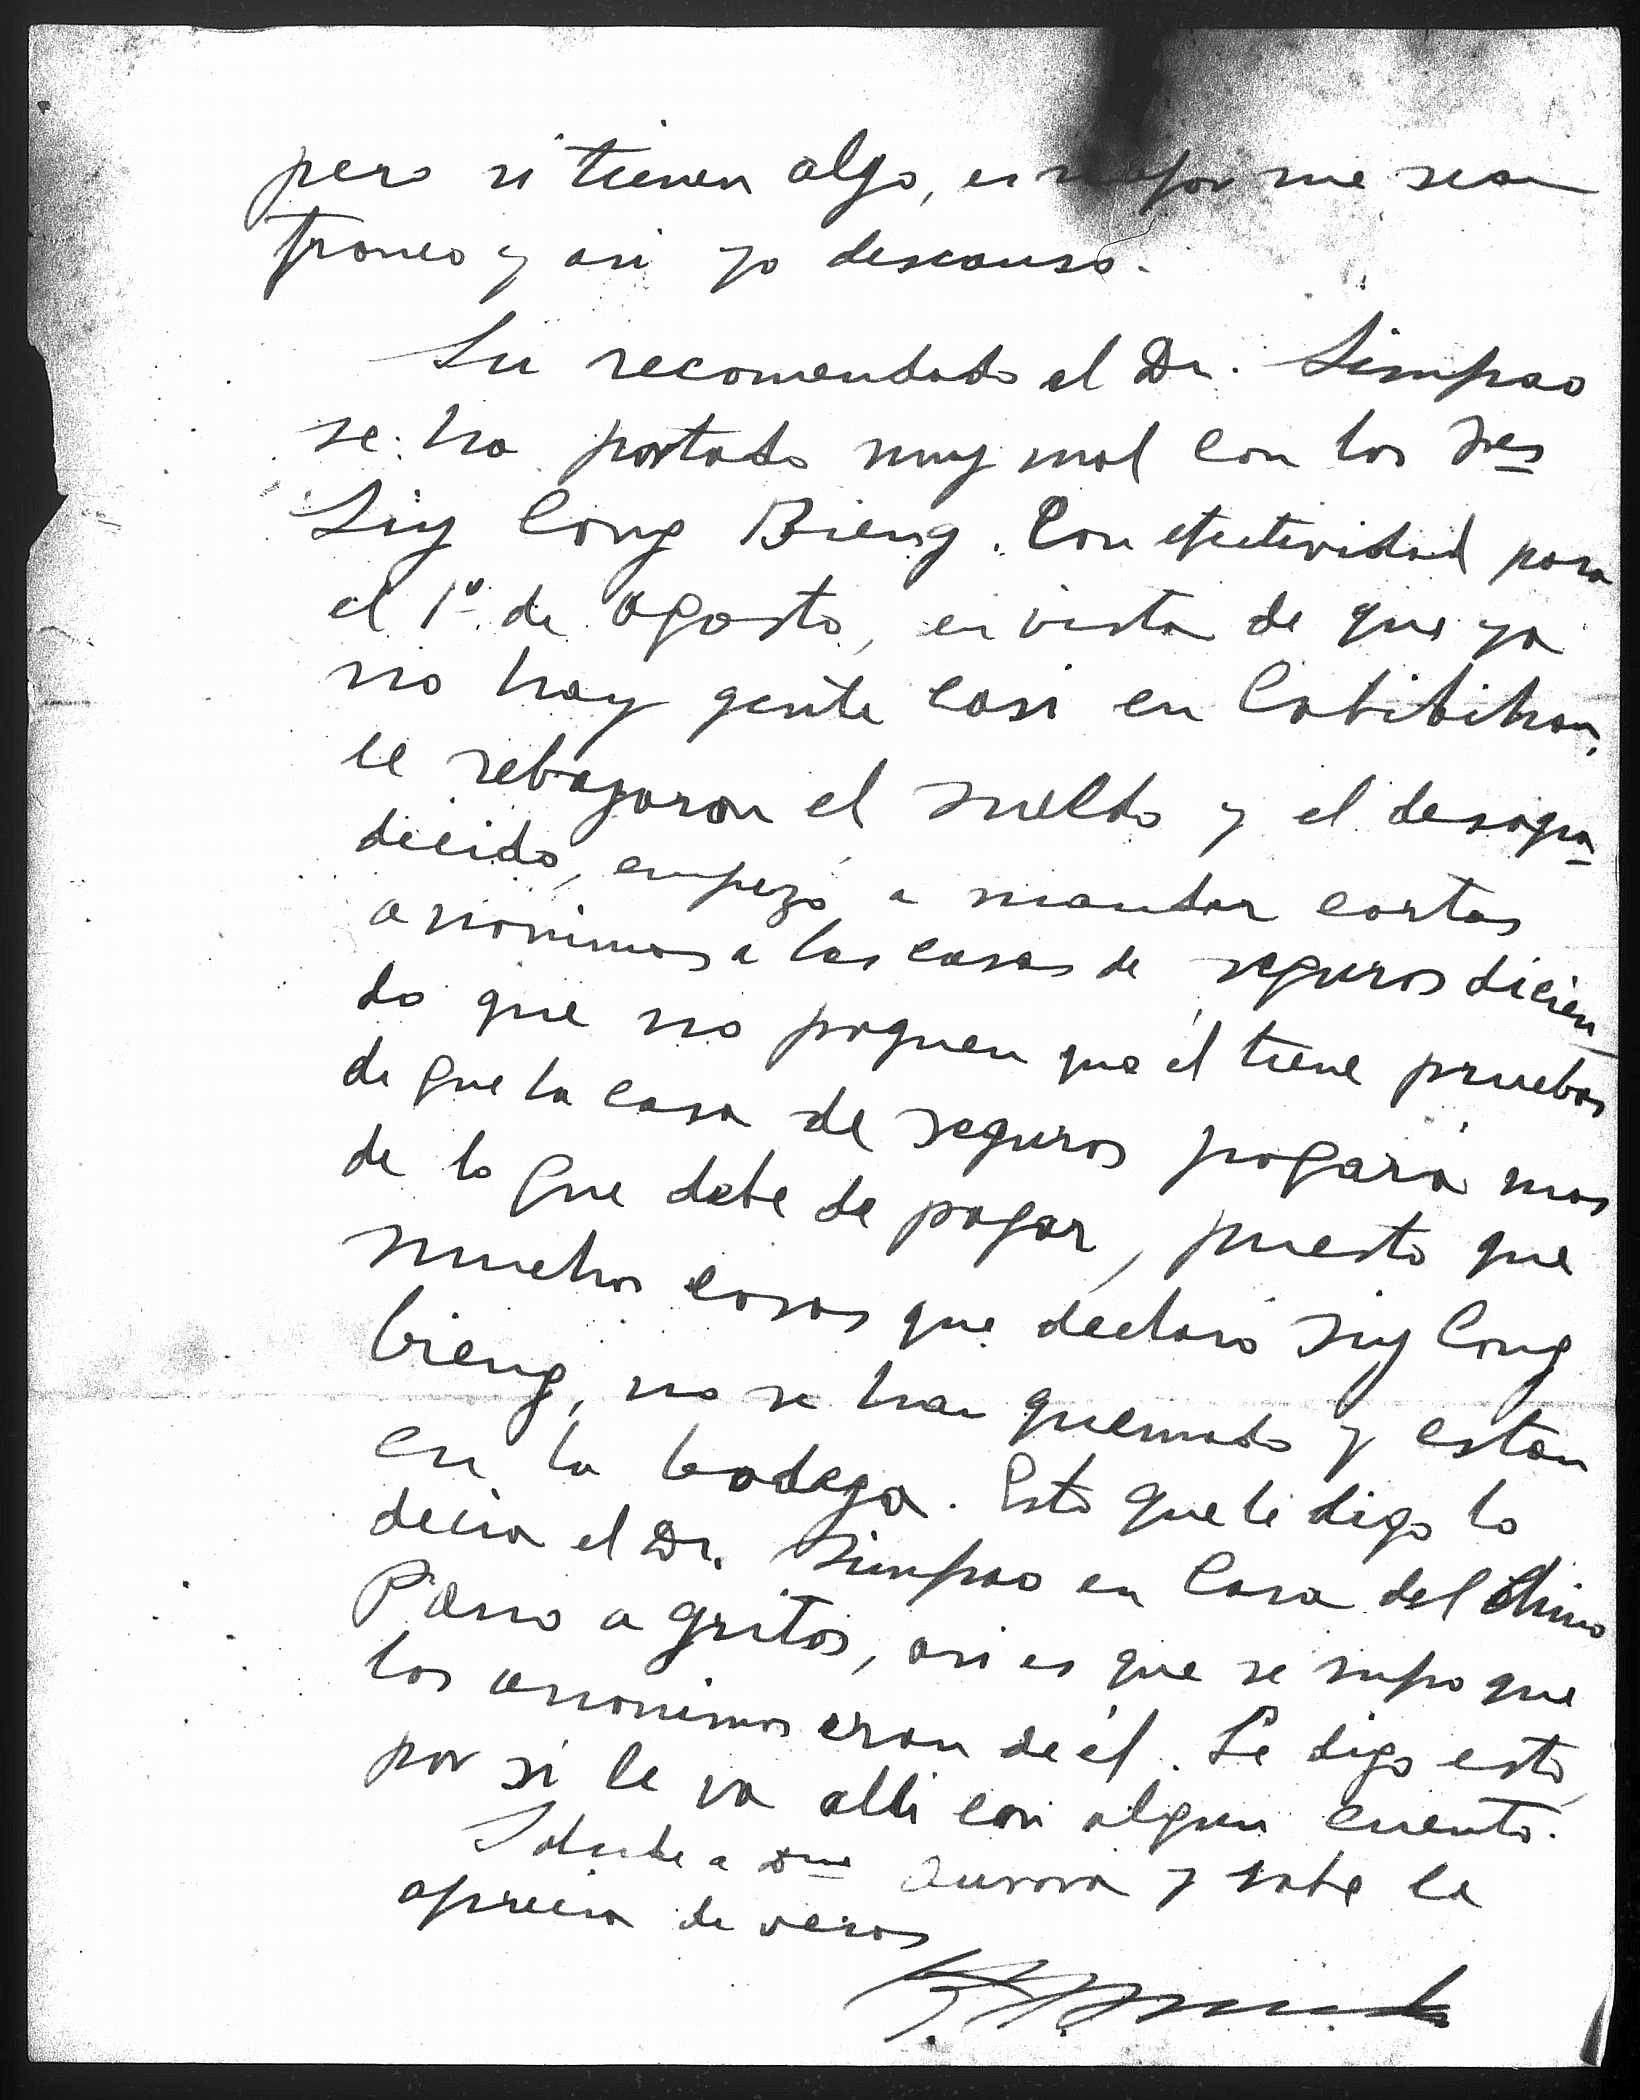 pero si tienen algo, es mejor me sean
franco y asi yo descanso.
Su recomendado el Dr. Simpao
se ha portado muy mal con los Sres
Siy Cong Bieng. Con efectividad para
el 1º de agosto, en vista de que ya
no hay gente casi en Cabibihan,
le rebajaron el sueldo y el desagra-
decido, empezó a mandar cartas
anonimas a las casas de seguros dicien-
do que no paguen que él tiene pruebas
de que la casa de seguros pagará mas
de lo que debe de pagar, puesto que
muchas cosas que declaró Siy Cong
bieng, no se han quemado y estan
en la bodega. Esto que le digo lo
decia el Dr. Simpao en casa del Chino
Paño a gritos, asi es que se supo que
los anonimos eran de él. Le digo esto,
por si le va alli con algun cuento.
Salude a Dña Aurora y sabe le
aprecia de veras